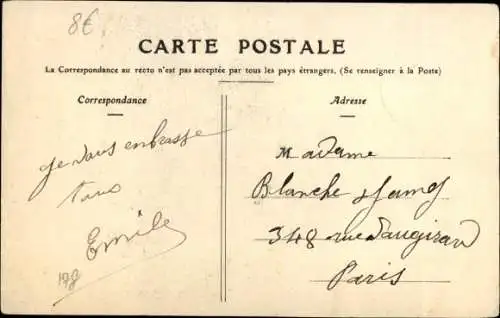 8€
CARTE POSTALE
La Correspondance au recto n'est pas acceptée par tous les pays étrangers. (Se renseigner à la Poste)
Correspondance
Je vous embrasse
tous
Emile
Adresse
Madame
Blanche
348 rue Vaugirard
Paris